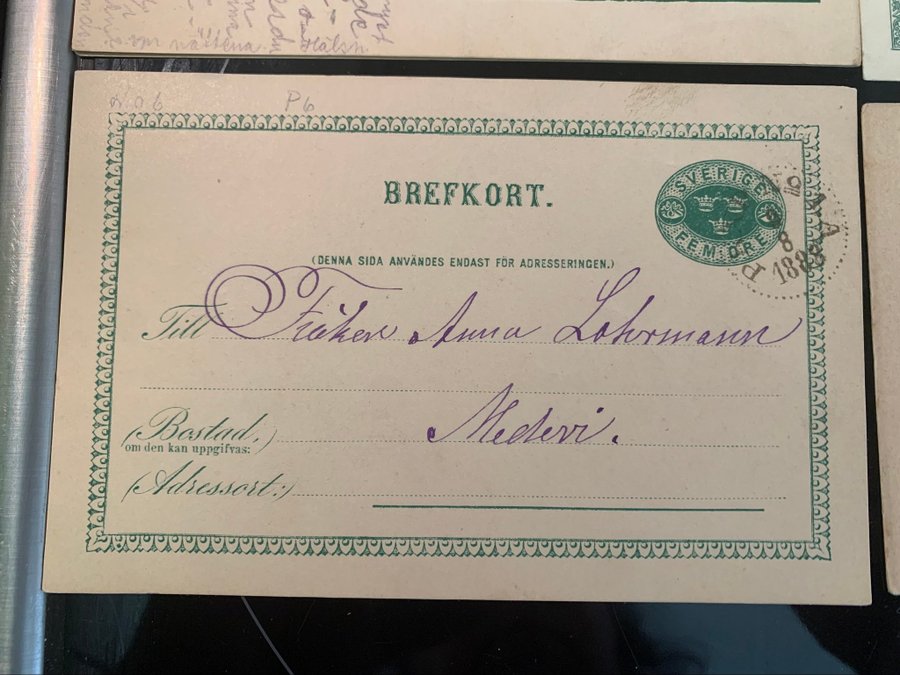 nyst
de
vor nättena
Hälsn
P 6
BREFKORT.
SVERIGE
FEM ÖRE
8
1888
(DENNA SIDA ANVÄNDES ENDAST FÖR ADRESSERINGEN.)
Till Fröken Anna Lohrmann
Medevi.
(Bostad,)
om den kan uppgifvas:
(Adressort:)